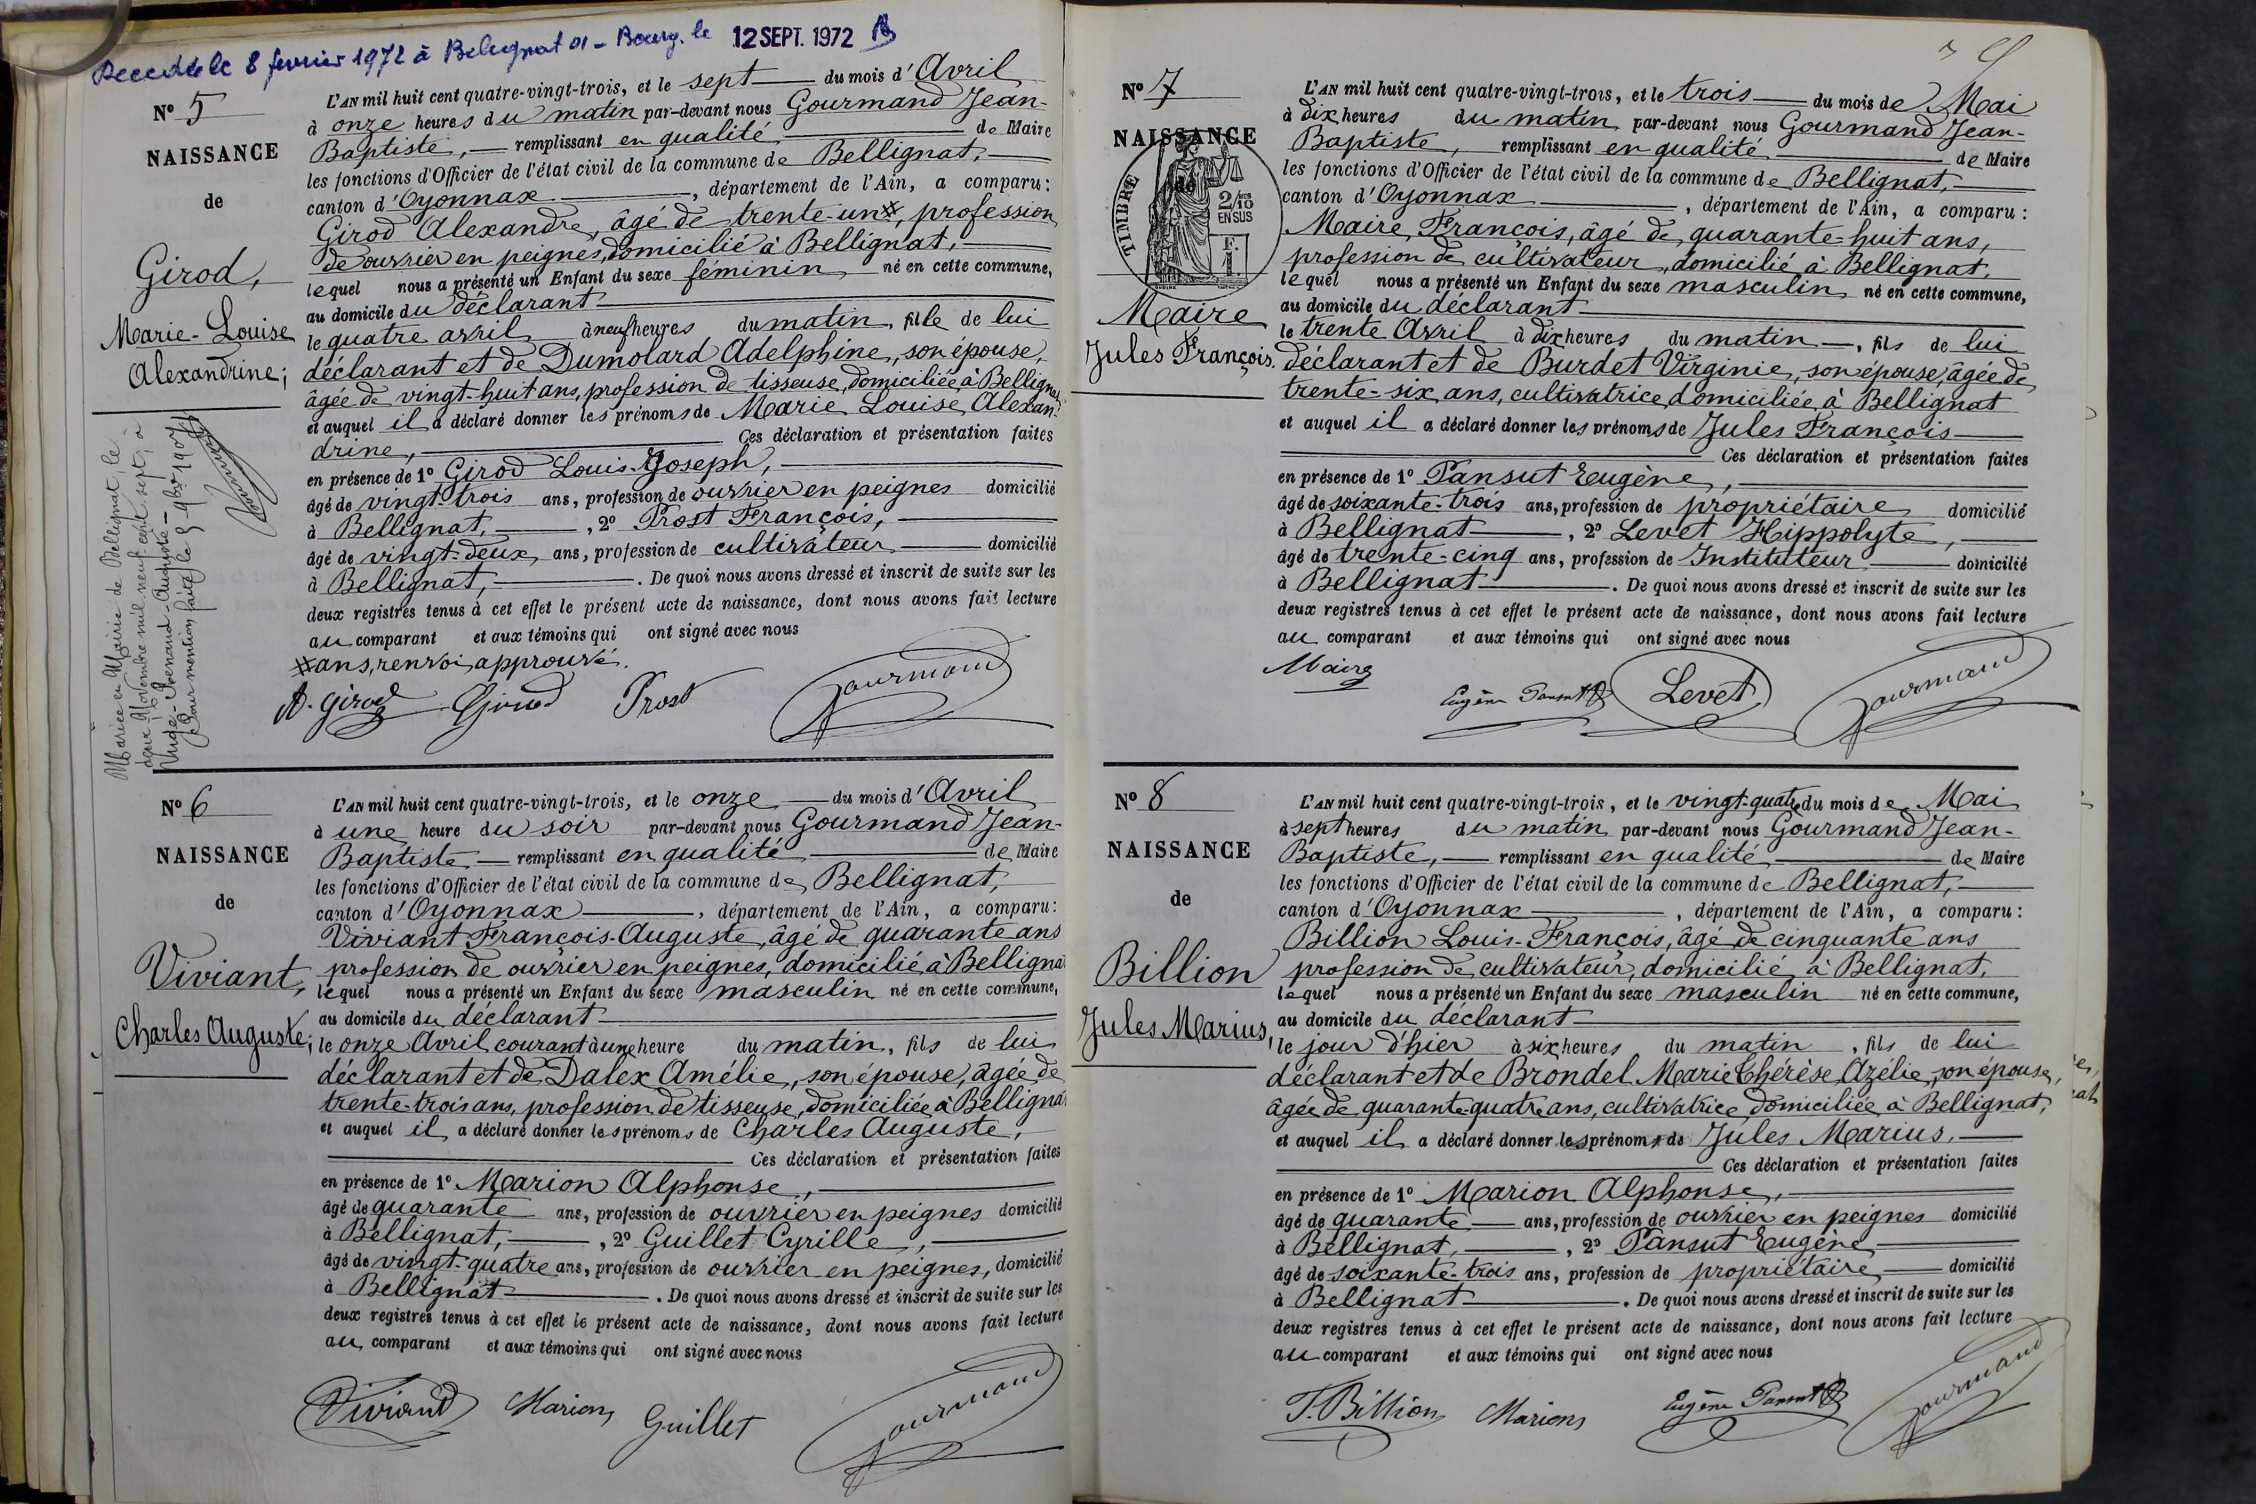 Décédée le 8 février 1972 à Belignat 01 - Bourg, le 12 SEPT. 1972
Nº 5
NAISSANCE
de
Girod,
Marie-Louise
Alexandrine;
Mariée en Mairie de Bellignat, le
deux Novembre mil neuf cent sept, à
Auguste
Pour mention faite le 5 9bre 1907
L'AN mil huit cent quatre-vingt-trois, et le sept du mois d'Avril
à onze heures du matin par-devant nous Gourmand Jean-
Baptiste, remplissant en qualité de Maire
les fonctions d'Officier de l'état civil de la commune de Bellignat,
canton d'Oyonnax, département de l'Ain, a comparu:
Girod Alexandre, âgé de trente-un x, profession
de ouvrier en peignes, domicilié à Bellignat,
lequel nous a présenté un Enfant du sexe féminin né en cette commune,
au domicile du déclarant
le quatre avril à neuf heures du matin, fille de lui
déclarant et de Dumolard Adelphine, son épouse,
âgée de vingt-huit ans, profession de tisseuse, domiciliée à Bellignat,
et auquel il a déclaré donner les prénoms de Marie Louise Alexan-
drine, Ces déclaration et présentation faites
en présence de 1º Girod Louis-Joseph,
âgé de vingt-trois ans, profession de ouvrier en peignes domicilié
à Bellignat, , 2º Prost François,
âgé de vingt-deux ans, profession de cultivateur domicilié
à Bellignat, . De quoi nous avons dressé et inscrit de suite sur les
deux registres tenus à cet effet le présent acte de naissance, dont nous avons fait lecture
au comparant et aux témoins qui ont signé avec nous
x ans, renvoi approuvé.
A. Girod Girod Prost Gourmand
Nº 6
NAISSANCE
de
Viviant,
Charles Auguste;
L'AN mil huit cent quatre-vingt-trois, et le onze du mois d'Avril
à une heure du soir par-devant nous Gourmand Jean-
Baptiste remplissant en qualité de Maire
les fonctions d'Officier de l'état civil de la commune de Bellignat,
canton d'Oyonnax, département de l'Ain, a comparu:
Viviant François-Auguste, âgé de quarante ans
profession de ouvrier en peignes, domicilié à Bellignat
lequel nous a présenté un Enfant du sexe masculin né en cette commune,
au domicile du déclarant
le onze Avril courant à une heure du matin, fils de lui
déclarant et de Dalex Amélie, son épouse, âgée de
trente-trois ans, profession de tisseuse, domiciliée à Bellignat
et auquel il a déclaré donner les prénoms de Charles Auguste,
Ces déclaration et présentation faites
en présence de 1º Marion Alphonse,
âgé de quarante ans, profession de ouvrier en peignes domicilié
à Bellignat, , 2º Guillet Cyrille,
âgé de vingt-quatre ans, profession de ouvrier en peignes, domicilié
à Bellignat . De quoi nous avons dressé et inscrit de suite sur les
deux registres tenus à cet effet le présent acte de naissance, dont nous avons fait lecture
au comparant et aux témoins qui ont signé avec nous
Viviant Marion Guillet Gourmand
Nº 7
NAISSANCE
de
TIMBRE
2/10
EN SUS
1 F.
Maire
Jules François.
L'AN mil huit cent quatre-vingt-trois, et le trois du mois de Mai
à dix heures du matin par-devant nous Gourmand Jean-
Baptiste, remplissant en qualité de Maire
les fonctions d'Officier de l'état civil de la commune de Bellignat,
canton d'Oyonnax, département de l'Ain, a comparu:
Maire, François, âgé de quarante-huit ans,
profession de cultivateur, domicilié à Bellignat,
lequel nous a présenté un Enfant du sexe masculin né en cette commune,
au domicile du déclarant
le trente Avril à dix heures du matin, fils de lui
déclarant et de Burdet Virginie, son épouse, âgée de
trente-six ans, cultivatrice domiciliée à Bellignat
et auquel il a déclaré donner les prénoms de Jules François
Ces déclaration et présentation faites
en présence de 1º Pansut Eugène,
âgé de soixante-trois ans, profession de propriétaire domicilié
à Bellignat , 2º Levet Hippolyte,
âgé de trente-cinq ans, profession de Instituteur domicilié
à Bellignat . De quoi nous avons dressé et inscrit de suite sur les
deux registres tenus à cet effet le présent acte de naissance, dont nous avons fait lecture
au comparant et aux témoins qui ont signé avec nous
Maire Eugène Pansut Levet Gourmand
Nº 8
NAISSANCE
de
Billion
Jules Marius,
L'AN mil huit cent quatre-vingt-trois, et le vingt-quatre du mois de Mai
à sept heures du matin par-devant nous Gourmand Jean-
Baptiste, remplissant en qualité de Maire
les fonctions d'Officier de l'état civil de la commune de Bellignat,
canton d'Oyonnax, département de l'Ain, a comparu:
Billion Louis-François, âgé de cinquante ans
profession de cultivateur, domicilié à Bellignat,
lequel nous a présenté un Enfant du sexe masculin né en cette commune,
au domicile du déclarant
le jour d'hier à six heures du matin, fils de lui
déclarant et de Brondel Marie Thérèse Azélie, son épouse,
âgée de quarante-quatre ans, cultivatrice domiciliée à Bellignat,
et auquel il a déclaré donner les prénoms de Jules Marius,
Ces déclaration et présentation faites
en présence de 1º Marion Alphonse,
âgé de quarante ans, profession de ouvrier en peignes domicilié
à Bellignat, , 2º Pansut Eugène
âgé de soixante-trois ans, profession de propriétaire domicilié
à Bellignat . De quoi nous avons dressé et inscrit de suite sur les
deux registres tenus à cet effet le présent acte de naissance, dont nous avons fait lecture
au comparant et aux témoins qui ont signé avec nous
F. Billion Marion Eugène Pansut Gourmand